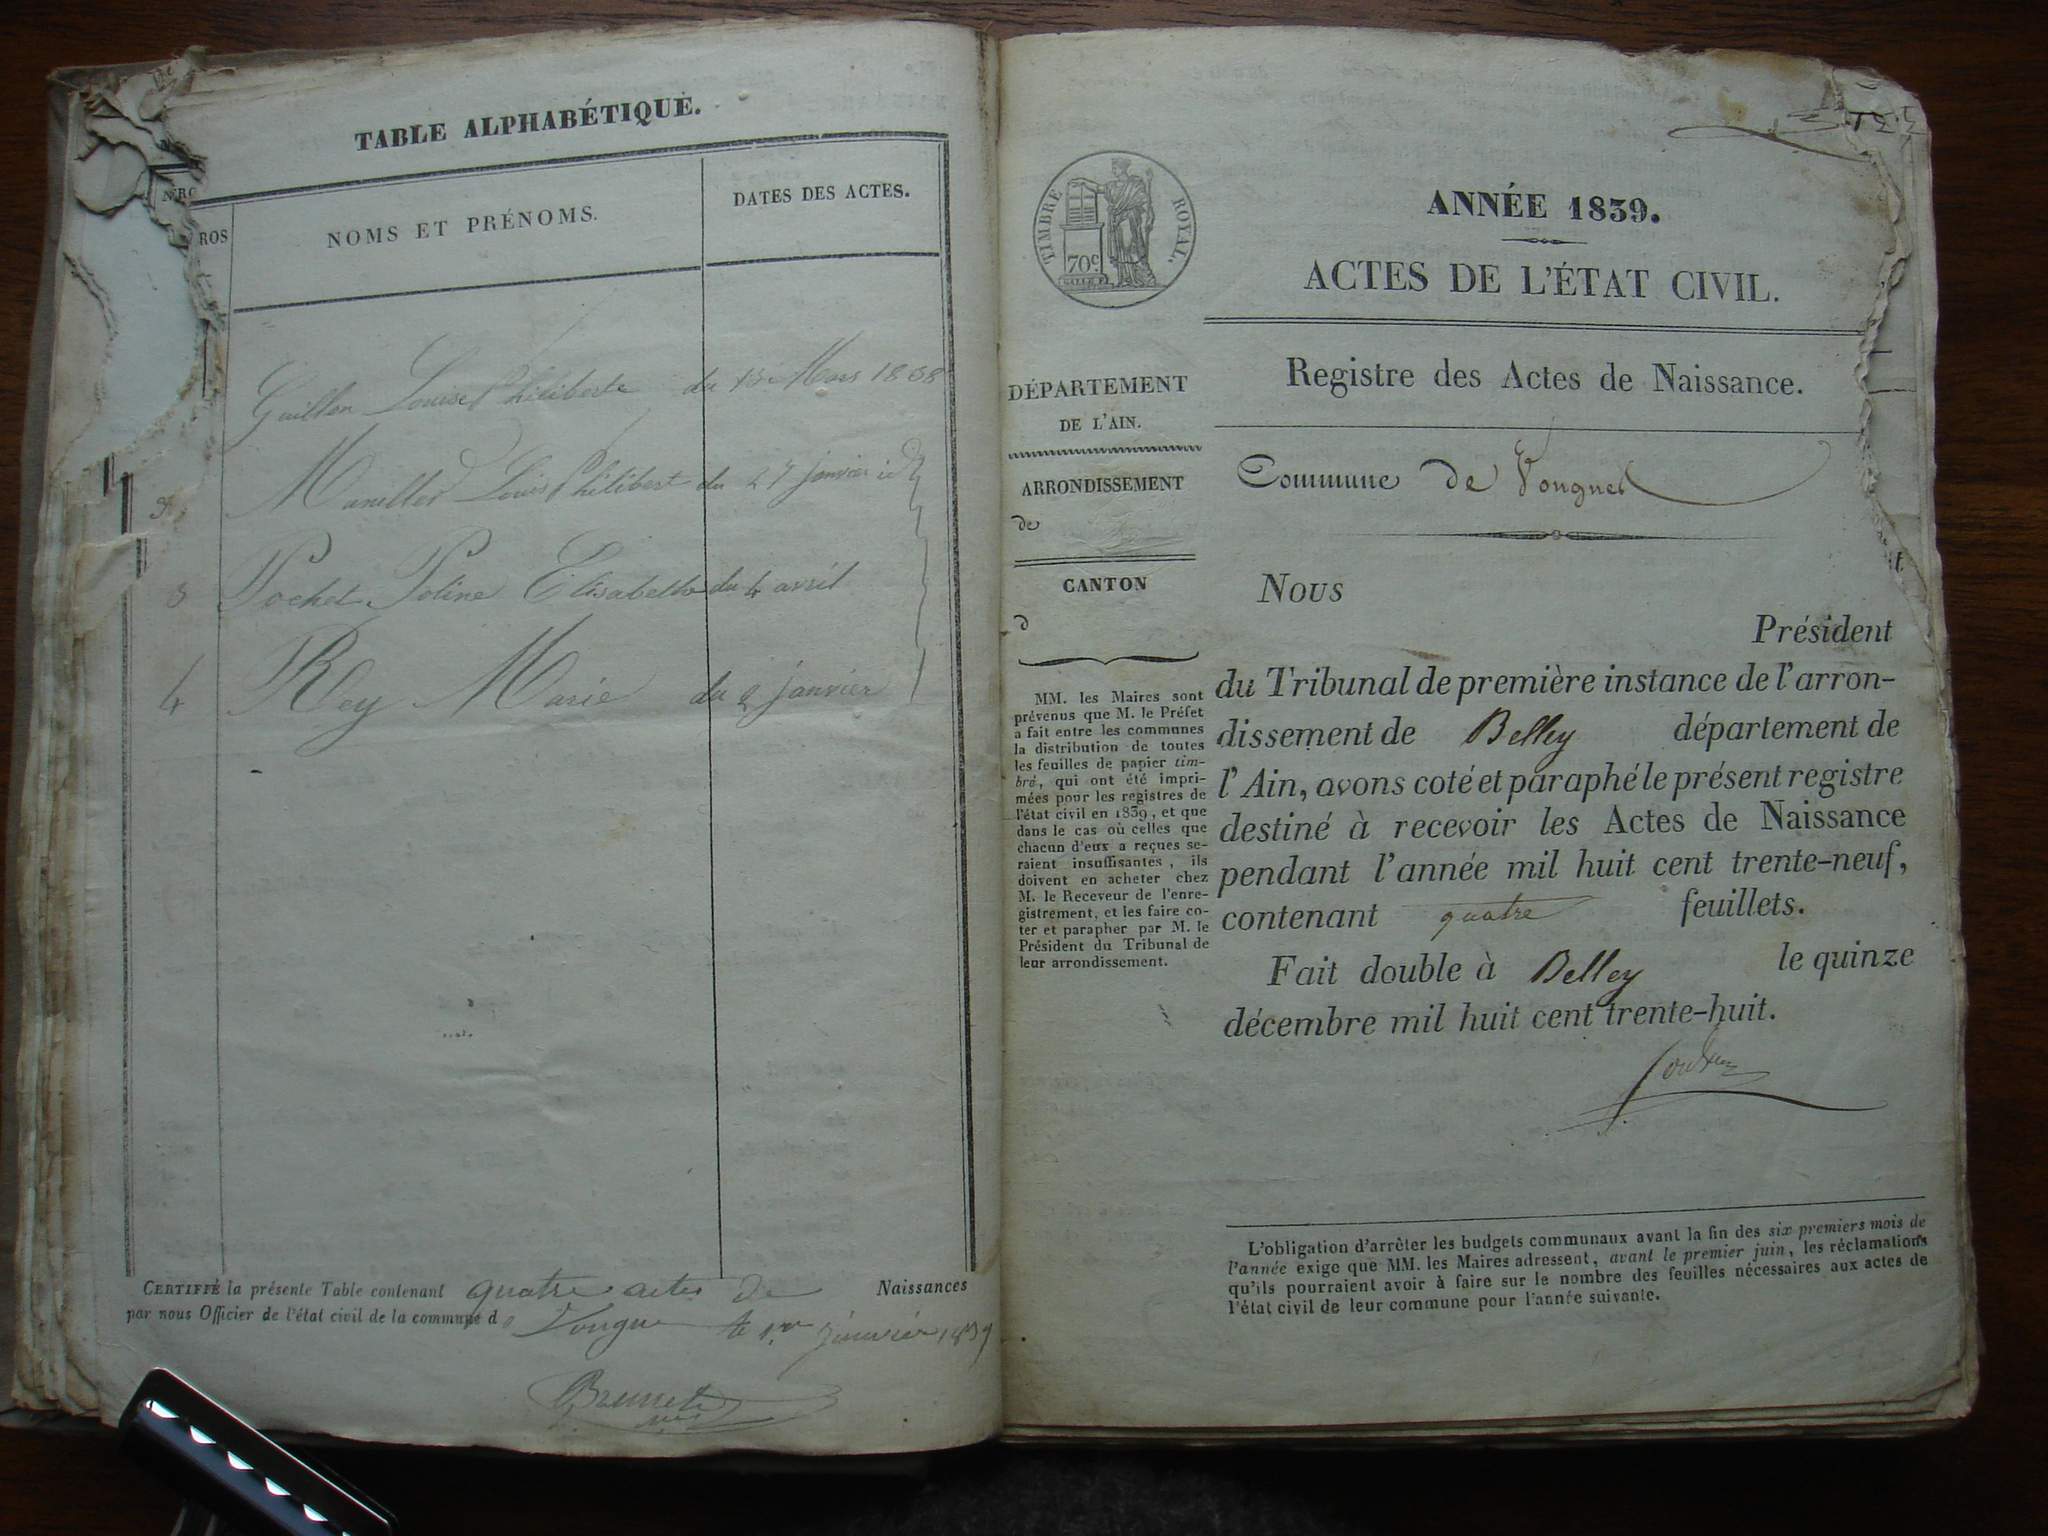 TABLE ALPHABÉTIQUE.
ROS
NOMS ET PRÉNOMS.
DATES DES ACTES.
Guillon Louise Philiberte du 13 Mars 1838
Louis Philibert du 27 janvier id
3 Pochet Poline Élisabethe du 4 avril
4 Rey Marie du 2 janvier
CERTIFFÉ la présente Table contenant quatre actes de Naissances
par nous Officier de l'état civil de la commune d Vongne le 1er janvier 1839
Brunet
TIMBRE ROYAL.
70c
ANNÉE 1839.
ACTES DE L'ÉTAT CIVIL.
Registre des Actes de Naissance.
DÉPARTEMENT
DE L'AIN.
ARRONDISSEMENT
de
CANTON
d
MM. les Maires sont
prévenus que M. le Préfet
a fait entre les communes
la distribution de toutes
les feuilles de papier tim-
bré, qui ont été impri-
mées pour les registres de
l'état civil en 1839, et que
dans le cas où celles que
chacun d'eux a reçues se-
raient insuffisantes, ils
doivent en acheter chez
M. le Receveur de l'enre-
gistrement, et les faire co-
ter et parapher par M. le
Président du Tribunal de
leur arrondissement.
Commune de Vongnes
Nous
Président
du Tribunal de première instance de l'arron-
dissement de Belley département de
l'Ain, avons coté et paraphé le présent registre
destiné à recevoir les Actes de Naissance
pendant l'année mil huit cent trente-neuf,
contenant quatre feuillets.
Fait double à Belley le quinze
décembre mil huit cent trente-huit.
L'obligation d'arrêter les budgets communaux avant la fin des six premiers mois de
l'année exige que MM. les Maires adressent, avant le premier juin, les réclamations
qu'ils pourraient avoir à faire sur le nombre des feuilles nécessaires aux actes de
l'état civil de leur commune pour l'année suivante.